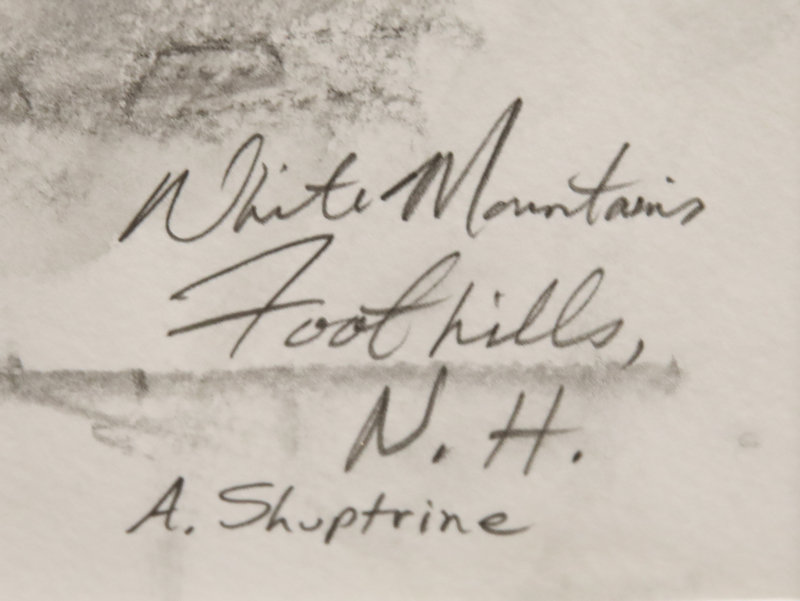 White Mountains
Foothills,
N. H.
A. Shuptrine